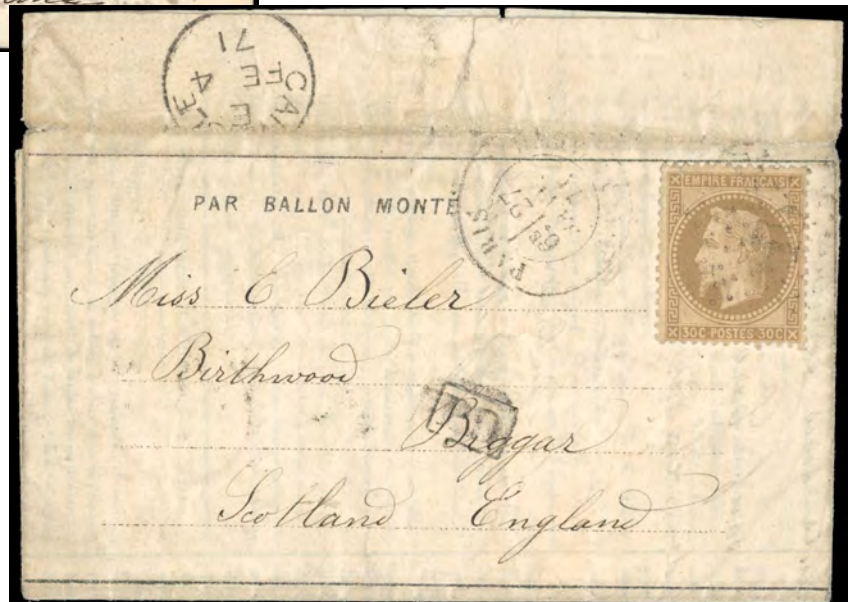 71
FE 4
E
PAR BALLON MONTÉ
PARIS
6E
27
EMPIRE FRANÇAIS
30C POSTES 30C
Miss E Bieler
Birthwood
PD
Biggar
Scotland England